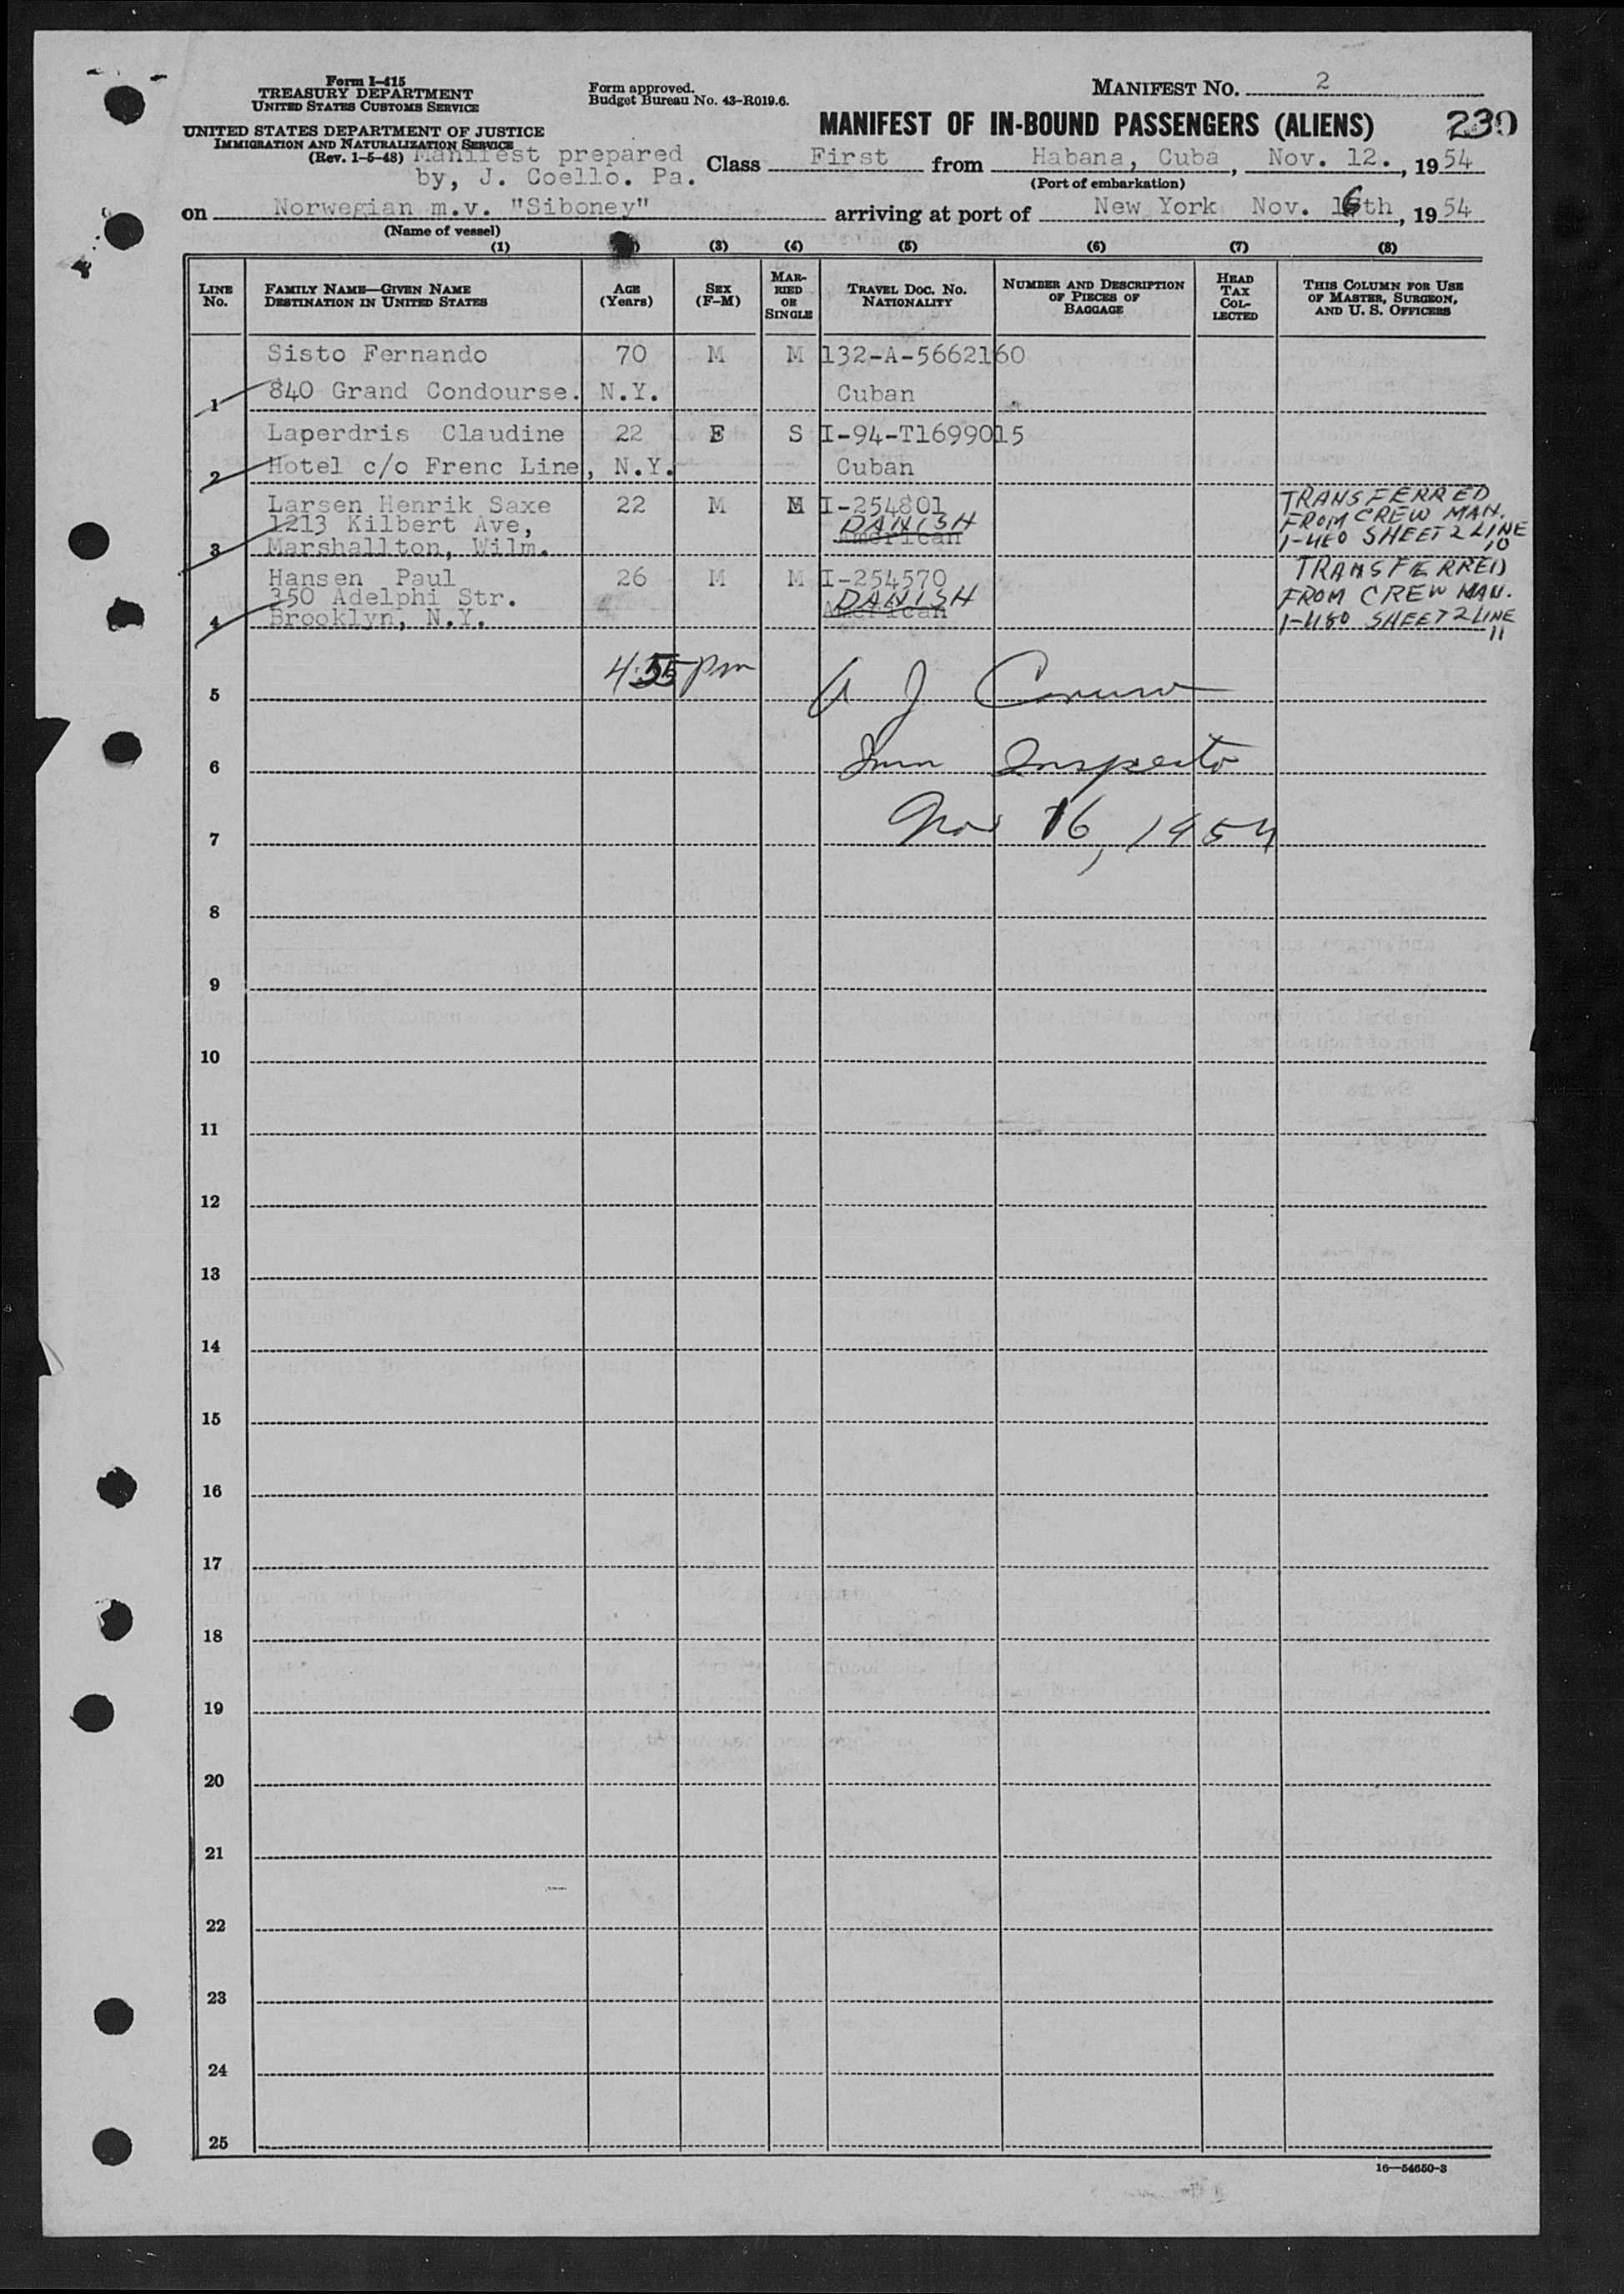 Form I-415
TREASURY DEPARTMENT
UNITED STATES CUSTOMS SERVICE
UNITED STATES DEPARTMENT OF JUSTICE
IMMIGRATION AND NATURALIZATION SERVICE
(Rev. 1-5-48)
Form approved.
Budget Bureau No. 43-R019.6.
MANIFEST NO. 2
MANIFEST OF IN-BOUND PASSENGERS (ALIENS) 230
Manifest prepared
by, J. Coello. Pa.
Class First from Habana, Cuba, Nov. 12., 1954
(Port of embarkation)
on Norwegian m.v. "Siboney" arriving at port of New York Nov. 16th, 1954
(Name of vessel)
(1) (3) (4) (5) (6) (7) (8)
LINE No. FAMILY NAME—GIVEN NAME DESTINATION IN UNITED STATES AGE (Years) SEX (F-M) MARRIED OR SINGLE TRAVEL DOC. NO. NATIONALITY NUMBER AND DESCRIPTION OF PIECES OF BAGGAGE HEAD TAX COLLECTED THIS COLUMN FOR USE OF MASTER, SURGEON, AND U. S. OFFICERS
Sisto Fernando 70 M M 132-A-5662160
1 840 Grand Condourse. N.Y. Cuban
Laperdris Claudine 22 F S I-94-T1699015
2 Hotel c/o Frenc Line, N.Y. Cuban
Larsen Henrik Saxe 22 M M I-254801 TRANSFERRED
1213 Kilbert Ave, DANISH FROM CREW MAN.
3 Marshallton, Wilm. American I-480 SHEET 2 LINE
10
Hansen Paul 26 M M I-254570 TRANSFERRED
350 Adelphi Str. DANISH FROM CREW MAN.
4 Brooklyn, N.Y. American I-480 SHEET 2 LINE
11
4:55 pm
5 A J
6 Imm Inspector
7 Nov 16, 1954
8
9
10
11
12
13
14
15
16
17
18
19
20
21
22
23
24
25
16—54650-3